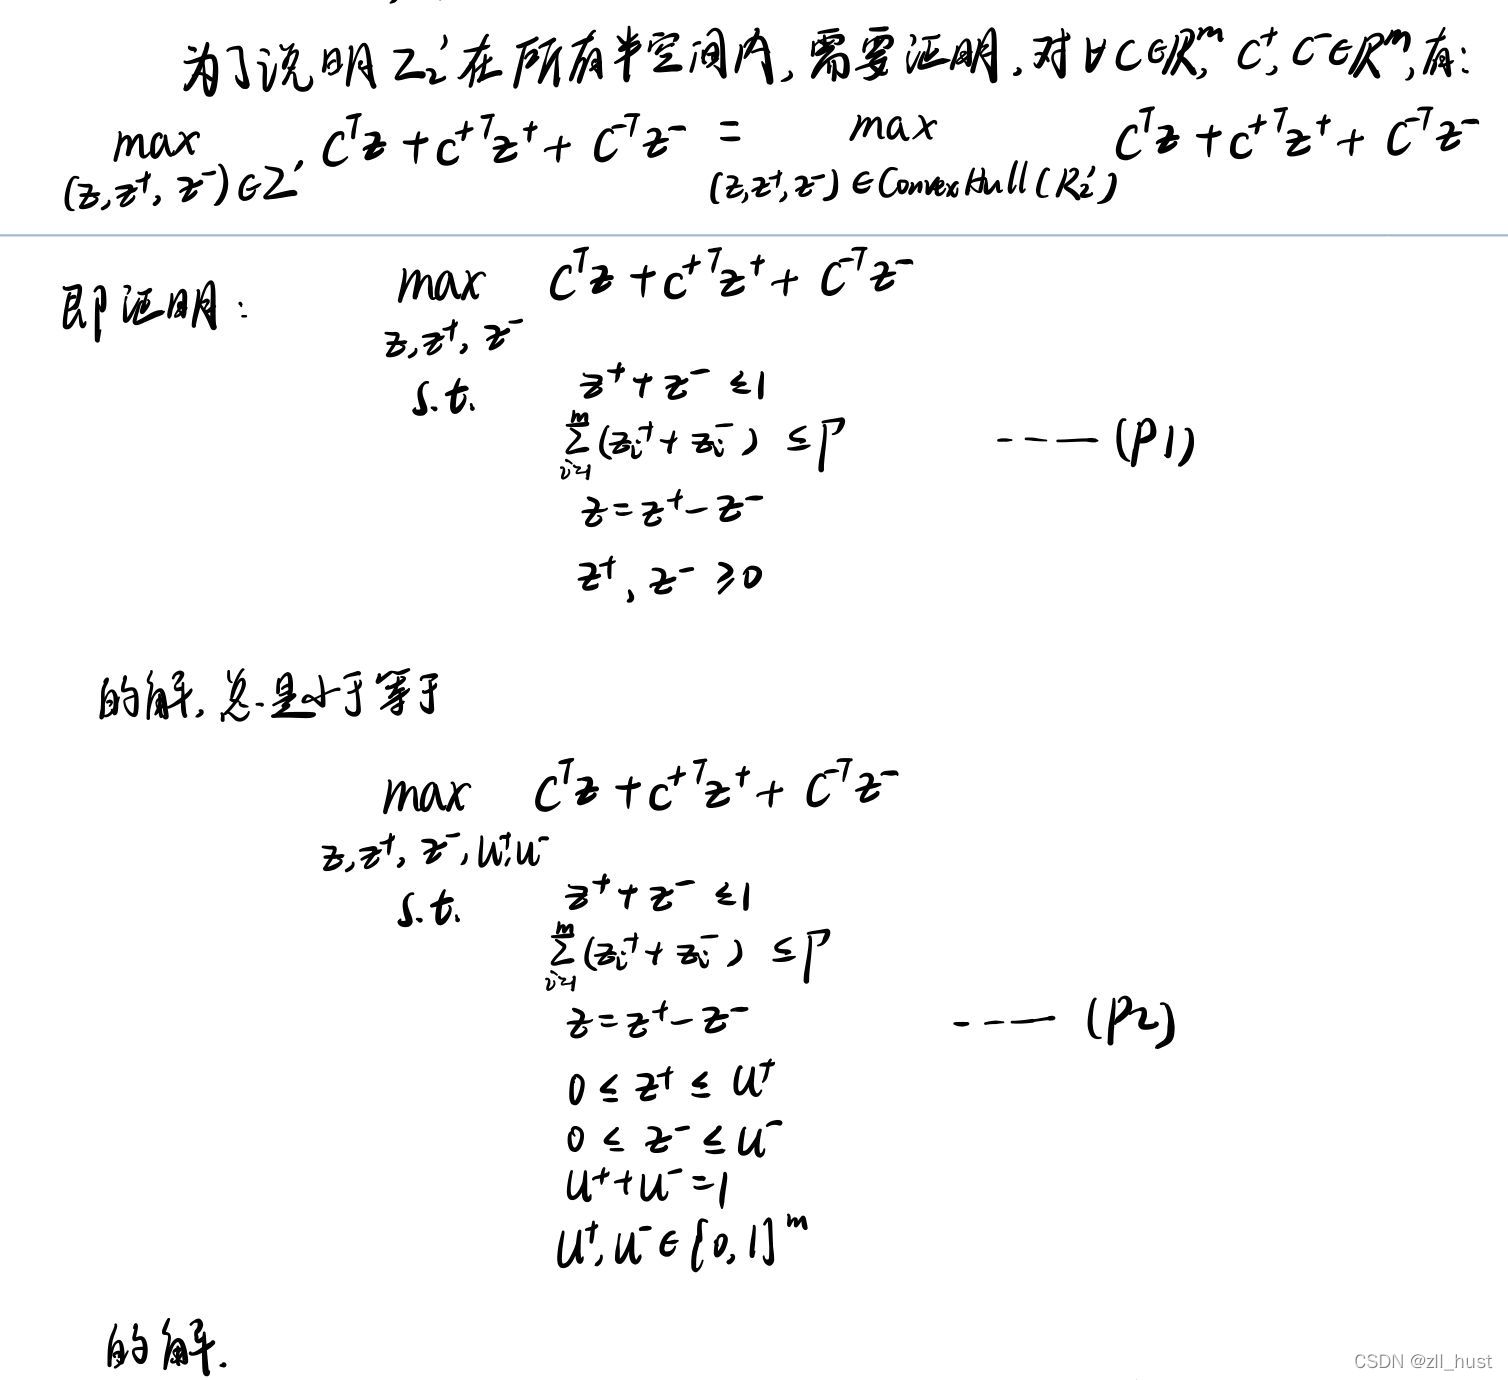 为了说明 Z₂′ 在所有半空间内, 需要证明, 对 ∀ C∈ℝᵐ, C⁺, C⁻∈ℝᵐ, 有:
max CᵀZ + C⁺ᵀZ⁺ + C⁻ᵀZ⁻ = max CᵀZ + C⁺ᵀZ⁺ + C⁻ᵀZ⁻
(Z, Z⁺, Z⁻) ∈ Z′ (Z, Z⁺, Z⁻) ∈ ConvexHull (R₂′)
即证明: max CᵀZ + C⁺ᵀZ⁺ + C⁻ᵀZ⁻
Z, Z⁺, Z⁻
s.t. Z⁺ + Z⁻ ≤ 1
∑ᵢ₌₁ᵐ (Zᵢ⁺ + Zᵢ⁻) ≤ Γ ---— (P1)
Z = Z⁺ − Z⁻
Z⁺, Z⁻ ≥ 0
的解, 总是小于等于
max CᵀZ + C⁺ᵀZ⁺ + C⁻ᵀZ⁻
Z, Z⁺, Z⁻, U⁺, U⁻
s.t. Z⁺ + Z⁻ ≤ 1
∑ᵢ₌₁ᵐ (Zᵢ⁺ + Zᵢ⁻) ≤ Γ
Z = Z⁺ − Z⁻ ---— (P2)
0 ≤ Z⁺ ≤ U⁺
0 ≤ Z⁻ ≤ U⁻
U⁺ + U⁻ = 1
U⁺, U⁻ ∈ {0, 1}ᵐ
的解.
CSDN @zll_hust